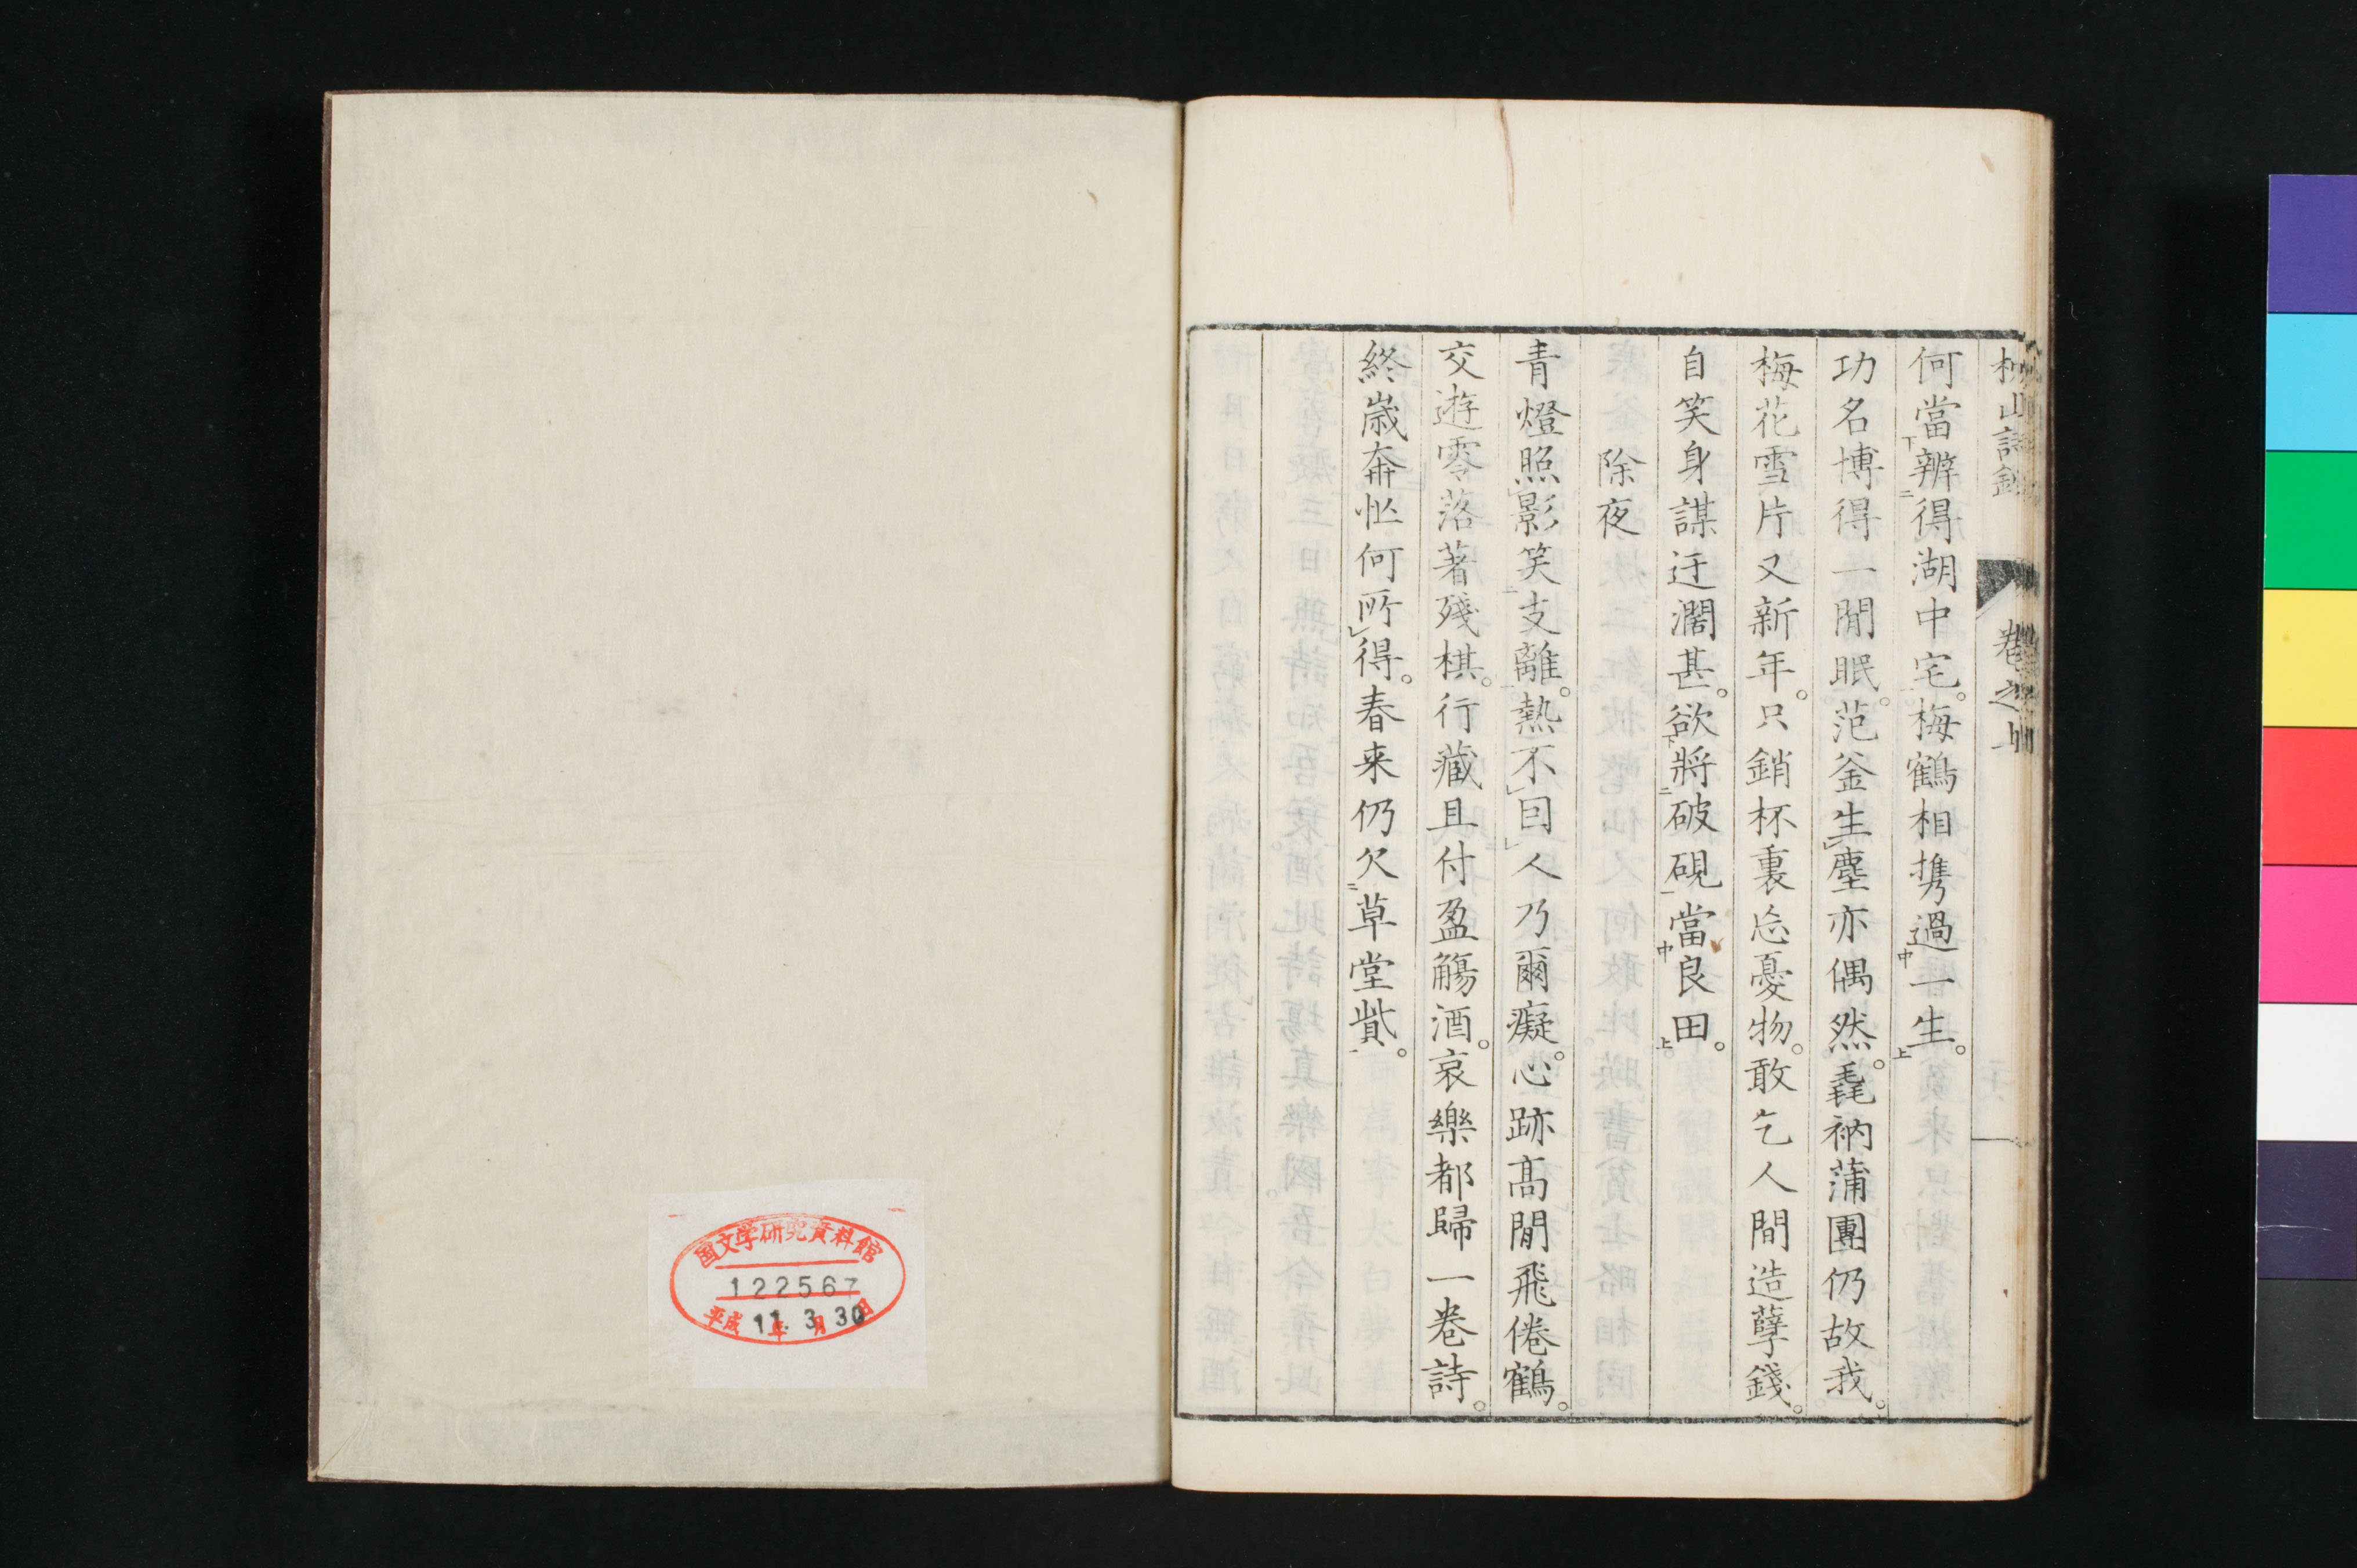 何當辨得湖中宅。梅鶴相攜過一生。
功名博得一閒眠。范釜生塵亦偶然。毳衲蒲團仍故我。
梅花雪片又新年。只銷杯裏忘憂物。敢乞人間造孽錢。
自笑身謀迂濶甚。欲將破硯當良田。
除夜
青燈照影笑支離。熱不因人乃爾癡。心跡高閒飛倦鶴。
交遊零落著殘棋。行藏且付盈觴酒。哀樂都歸一卷詩。
終歲奔忙何所得。春来仍欠草堂貲。
国文学研究資料館
122567
平成 11年 3月 30日